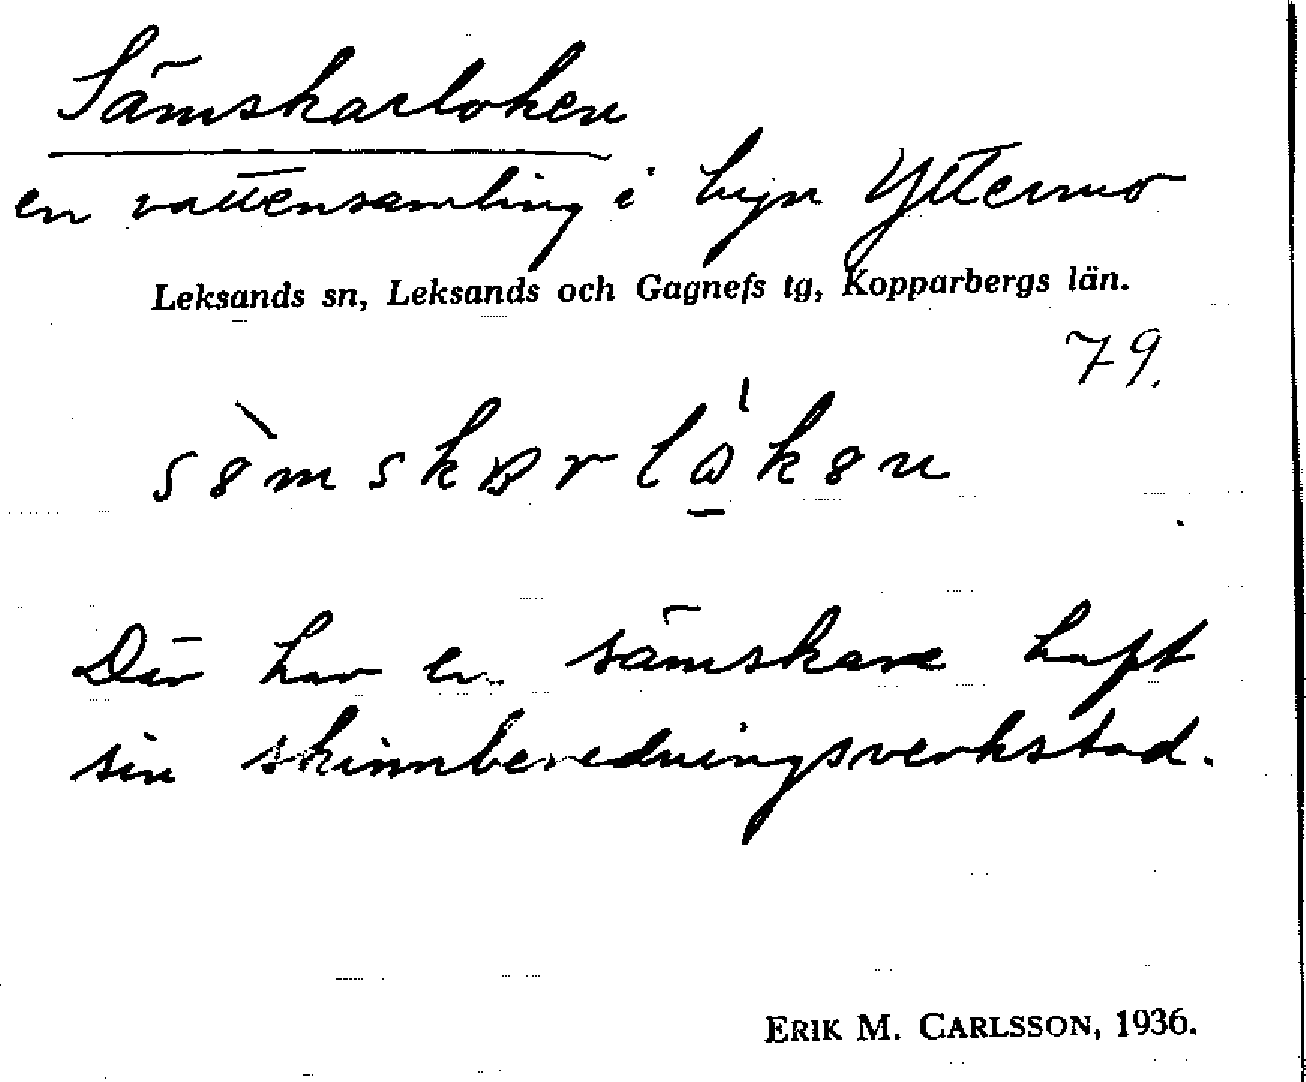 Sämskarloken
en vattensamling i byn Yttermo
Leksands sn, Leksands och Gagnefs tg, Kopparbergs län.
79.
Där har en sämskare haft
sin skinnberedningsverkstad.
ERIK M. CARLSSON, 1936.